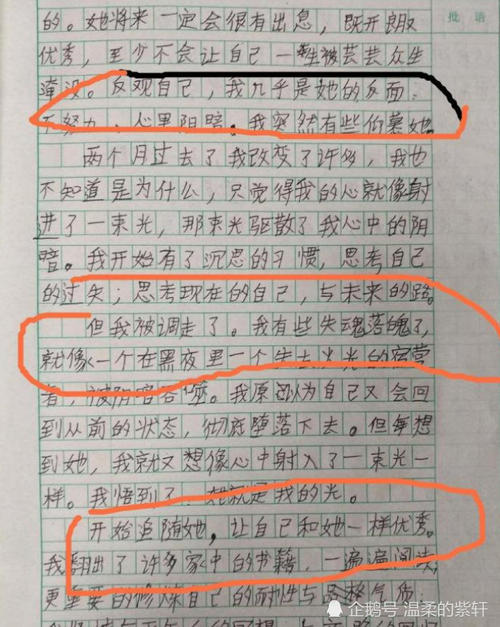 批 语
的。她将来一定会很有出息，既开朗又
优秀，至少不会让自己一生被芸芸众生
淹没。反观自己，我几乎是她的反面：
不努力、心里阴暗。我突然有些仰慕她。
两个月过去了我改变了许多，我也
不知道是为什么，只觉得我的心就像射
进了一束光，那束光驱散了我心中的阴
暗。我开始有了沉思的习惯，思考自己
的过失；思考现在的自己，与未来的路。
但我被调走了。我有些失魂落魄了，
就像一个在黑夜里一个失去火光的宿营
者，被阴暗吞噬。我原以为自己又会回
到从前的状态，彻底堕落下去。但每想
到她，我就又想像心中射入了一束光一
样。我悟到了，她就是我的光。
开始追随她，让自己和她一样优秀。
我翻出了许多家中的书籍，一遍遍阅读，
更重要的修炼自己的耐性与
企鹅号 温柔的紫轩